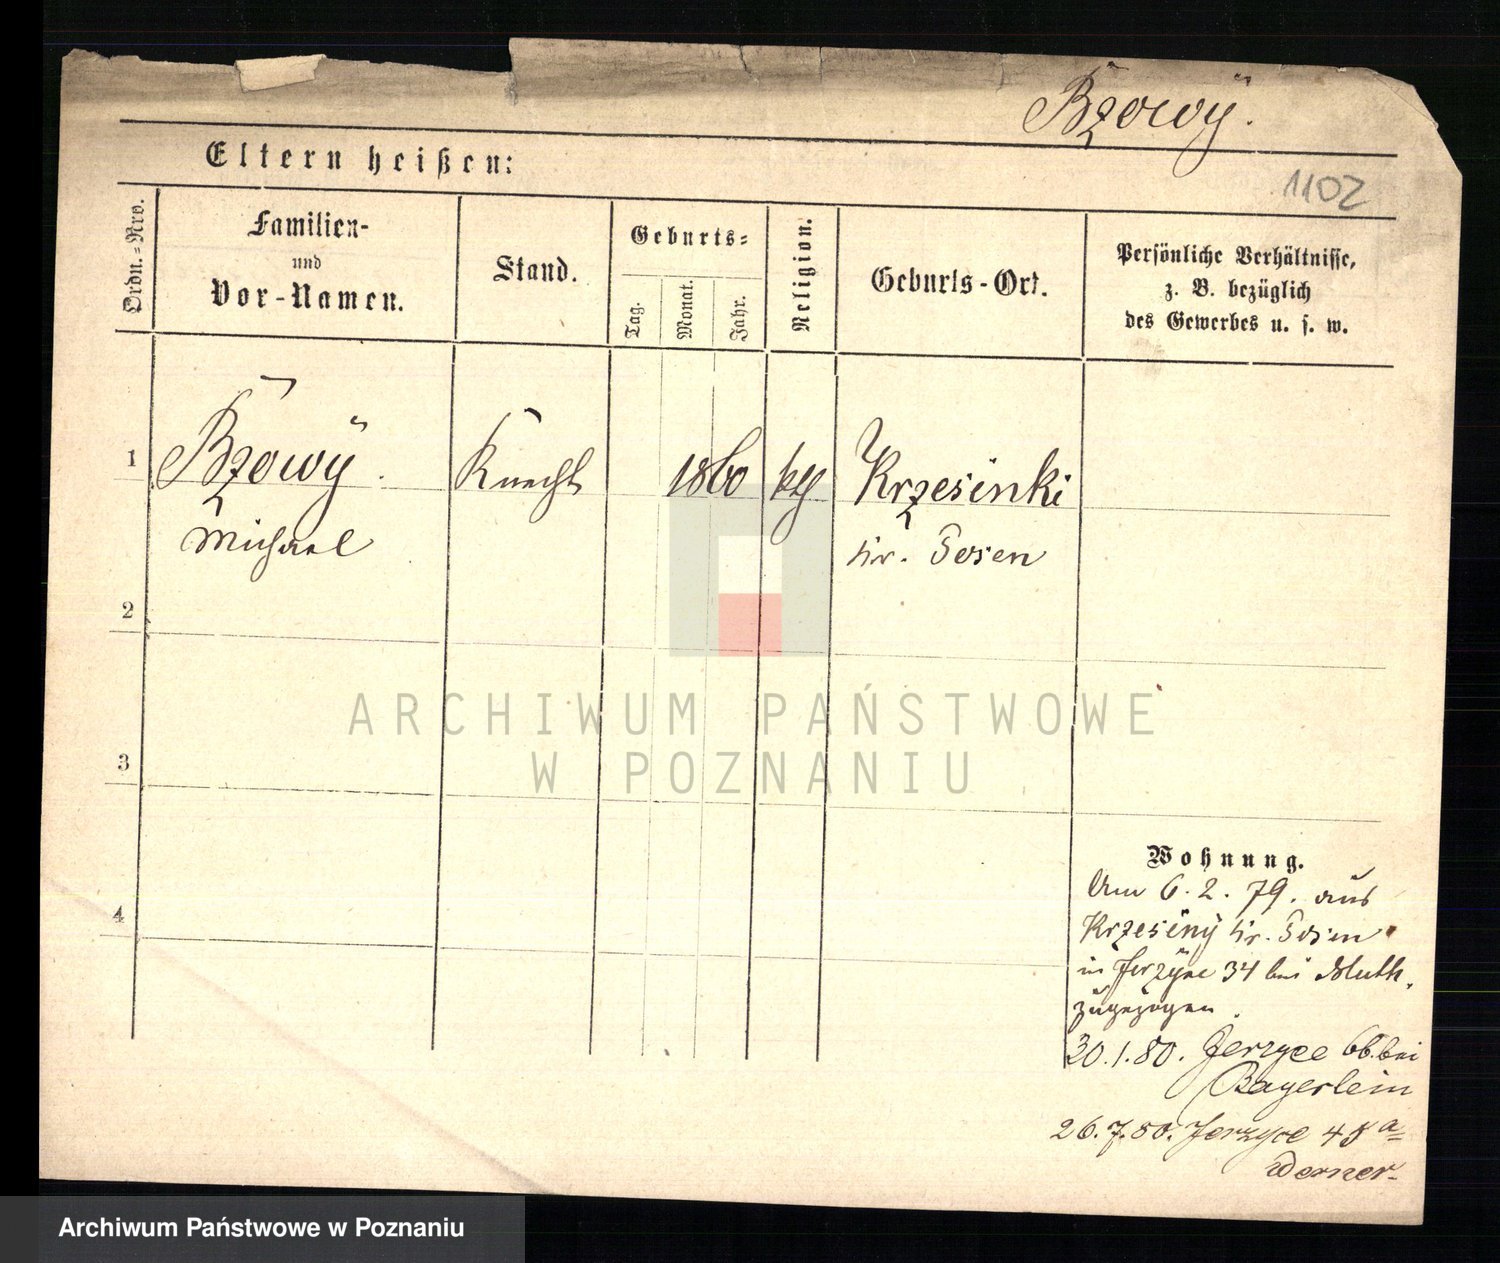 Bzowÿ.
Eltern heißen:
1102
Ordn.-Nro.
Familien-
und
Vor-Namen.
Stand.
Geburts-
Tag.
Monat.
Jahr.
Religion.
Geburts-Ort.
Persönliche Verhältnisse,
z. B. bezüglich
des Gewerbes u. s. w.
1
Bzowÿ.
Michael
Knecht
1860
kth
Krzesinki
Kr. Posen
2
3
4
ARCHIWUM PAŃSTWOWE
W POZNANIU
Wohnung.
Am 6.2.79. aus
Krzesinÿ Kr. Posen
in Jerzÿce 34 bei
zugezogen.
30.1.80. Jerzyce 66. bei
Bayerlein
26.7.80. Jerzyce 45a
Werner
Archiwum Państwowe w Poznaniu